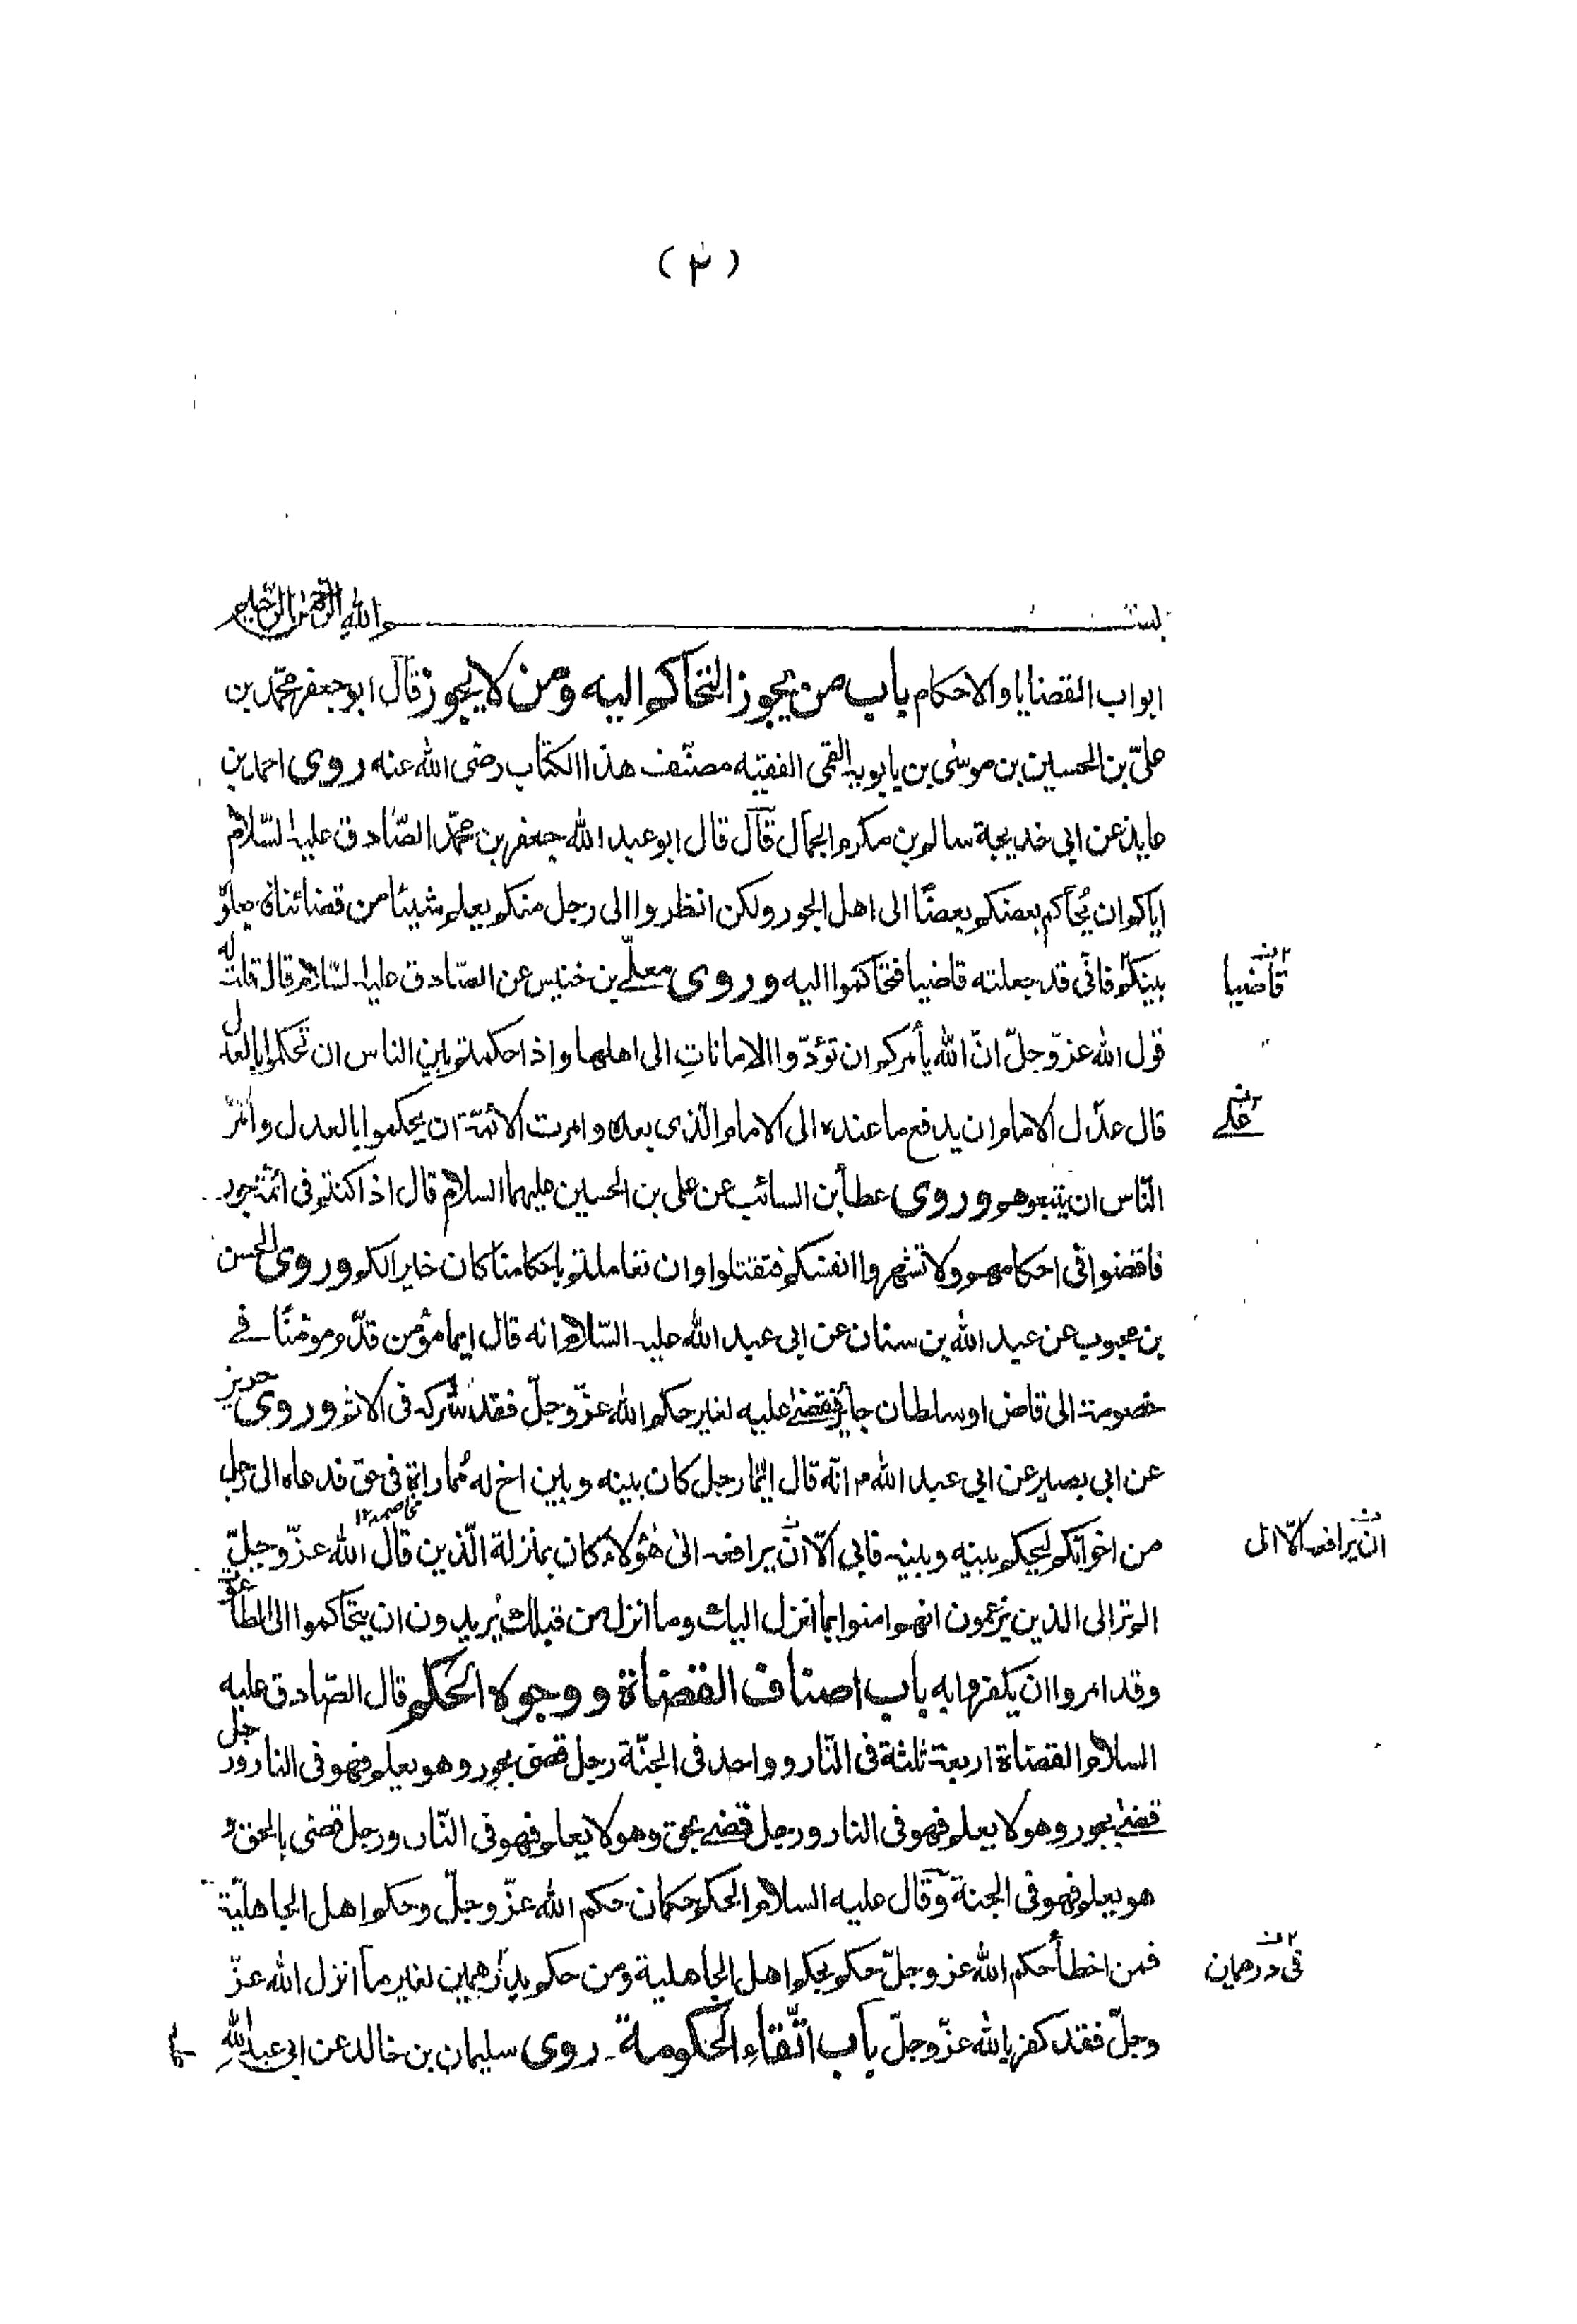 (٣)
بسم الله الرحمن الرحيم
ابواب القضايا والاحكام باب من يجوز التحاكم اليه ومن لا يجوز قال ابو جعفر محمّد بن
علىّ بن الحسين بن موسٰى بن بابويه القمى الفقيه مصنّف هذا الكتاب رضى الله عنه روى احمد بن
عايذ عن ابى خديجة سالم بن مكرم الجمال قال قال ابو عبد الله جعفر بن محمّد الصّادق عليه السّلام
اياكم ان يُحاكم بعضكم بعضًا الى اهل الجور ولكن انظروا الى رجل منكم يعلم شيئا من قضائنا فاجعلوه
بينكم فانّى قد جعلته قاضيا فتحاكموا اليه وروى معلّے بن خنيس عن الصّادق عليه السّلام قال قلت له
قاضيا
قول الله عزّ وجلّ انّ الله يأمركم ان تؤدّوا الاماناتِ الى اهلها واذا حكمتم بين الناس ان تحكموا بالعدل
قال عدل الامام ان يدفع ما عنده الى الامام الّذى بعده وامرت الائمّة ان يحكموا بالعدل وامر
علے
النّاس ان يتبعوهم وروى عطأ بن السائب عن على بن الحسين عليهما السلام قال اذا كنتم فى ائمّة جور
فاقضوا فى احكامهم ولا تشهروا انفسكم فتقتلوا وان تعاملتم باحكامنا كان خيرا لكم وروى الحسن
بن محبوب عن عبد الله بن سنان عن ابى عبد الله عليه السّلام انه قال ايما مؤمن قدّم مومنًا فے
خصومة الى قاض او سلطان جائر فقضے عليه لغير حكم الله عزّ وجلّ فقد شركه فى الاثم وروى حريز
عن ابى بصير عن ابى عبد الله ؏ انّه قال ايّما رجل كان بينه وبين اخ له مُماراة فى حق فدعاه الى رجل
مخاصمه ١٢
من اخوانكم ليحكم بينه وبينه فابى الّا ان يرافعه الى هٰؤلاء كان بمنزلة الّذين قال الله عزّ وجلّ
ان يرافعه الّا الى
الم تر الى الذين يزعمون انهم امنوا بما انزل اليك وما انزل من قبلك يريدون ان يتحاكموا الى الطاغوت
وقد امروا ان يكفروا به باب اصناف القضاة ووجوه الحكم قال الصّادق عليه
السلام القضاة اربعة ثلثة فى النّار وواحد فى الجنّة رجل قضى بجور وهو يعلم فهو فى النار ورجل
قضے بجور وهو لا يعلم فهو فى النار ورجل قضے بحق وهو لا يعلم فهو فى النّار ورجل قضى بالحق و
هو يعلم فهو فى الجنة وقال عليه السلام الحكم حكمان حكم الله عزّ وجلّ وحكم اهل الجاهليّة
فمن اخطأ حكم الله عز وجلّ حكم بحكم اهل الجاهلية ومن حكم بدرهمين لغير ما انزل الله عزّ
فى درهمين
وجلّ فقد كفر بالله عزّ وجلّ باب اتّقاء الحكومة روى سليمان بن خالد عن ابى عبد الله